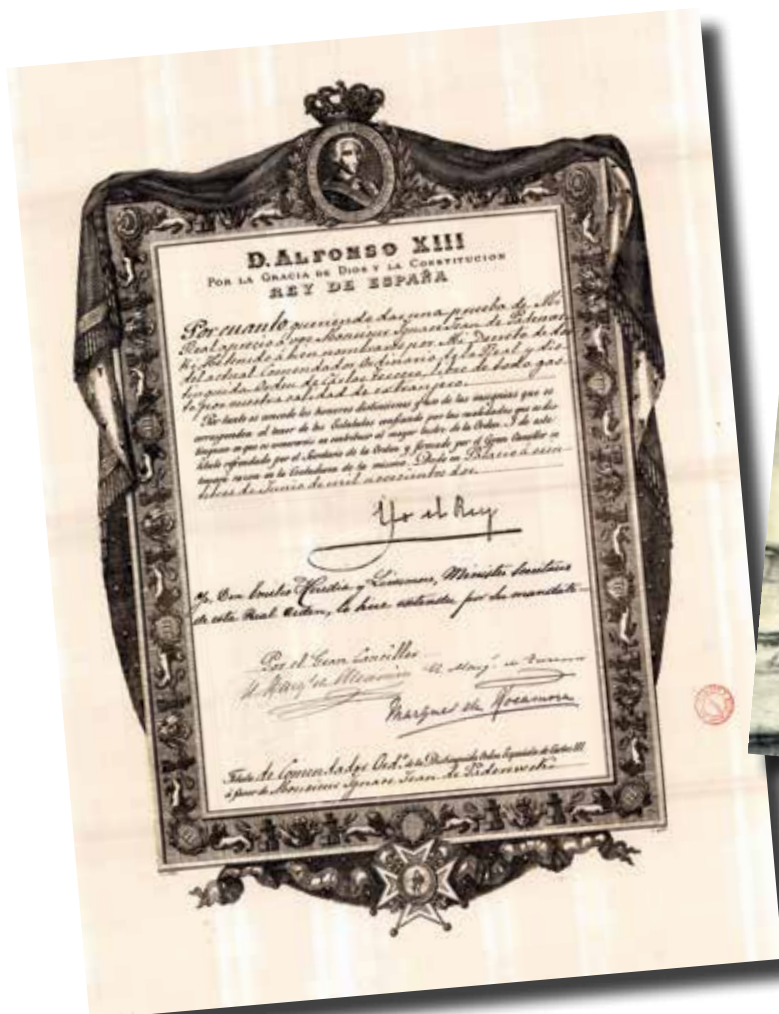 D. ALFONSO XIII
POR LA GRACIA DE DIOS Y LA CONSTITUCION
REY DE ESPAÑA
Por cuanto queriendo dar una prueba de Mi
Real aprecio á vos Monsieur Ignace Jean de
He tenido á bien nombraros por Mi Decreto de dos
del actual Comendador Ordinario de la Real y dis-
tinguida Orden de Cárlos Tercero, libre de todo gas-
to por vuestra calidad de extranjero.
Por tanto os concedo los honores distinciones y uso de las insignias que os
corresponden al tenor de los Estatutos confiando por las cualidades que os dis-
tinguen en que os esmerareis en contribuir al mayor lustre de la Orden. Y de este
título refrendado por el Secretario de la Orden y firmado por el Gran Canciller se
tomará razon en la Contaduria de la misma. Dado en Palacio á
de Junio de mil novecientos dos
Yo el Rey
Yo, Don Emilio Heredia y Ministro Secretario
de esta Real Orden, lo hice extender por su mandato
Por el Gran Canciller
El Marq. de
Marques de Rocamora
Título de Comendador Ord.º de la Distinguida Orden Española de Cárlos III
á favor de Monsieur Ignace Jean de